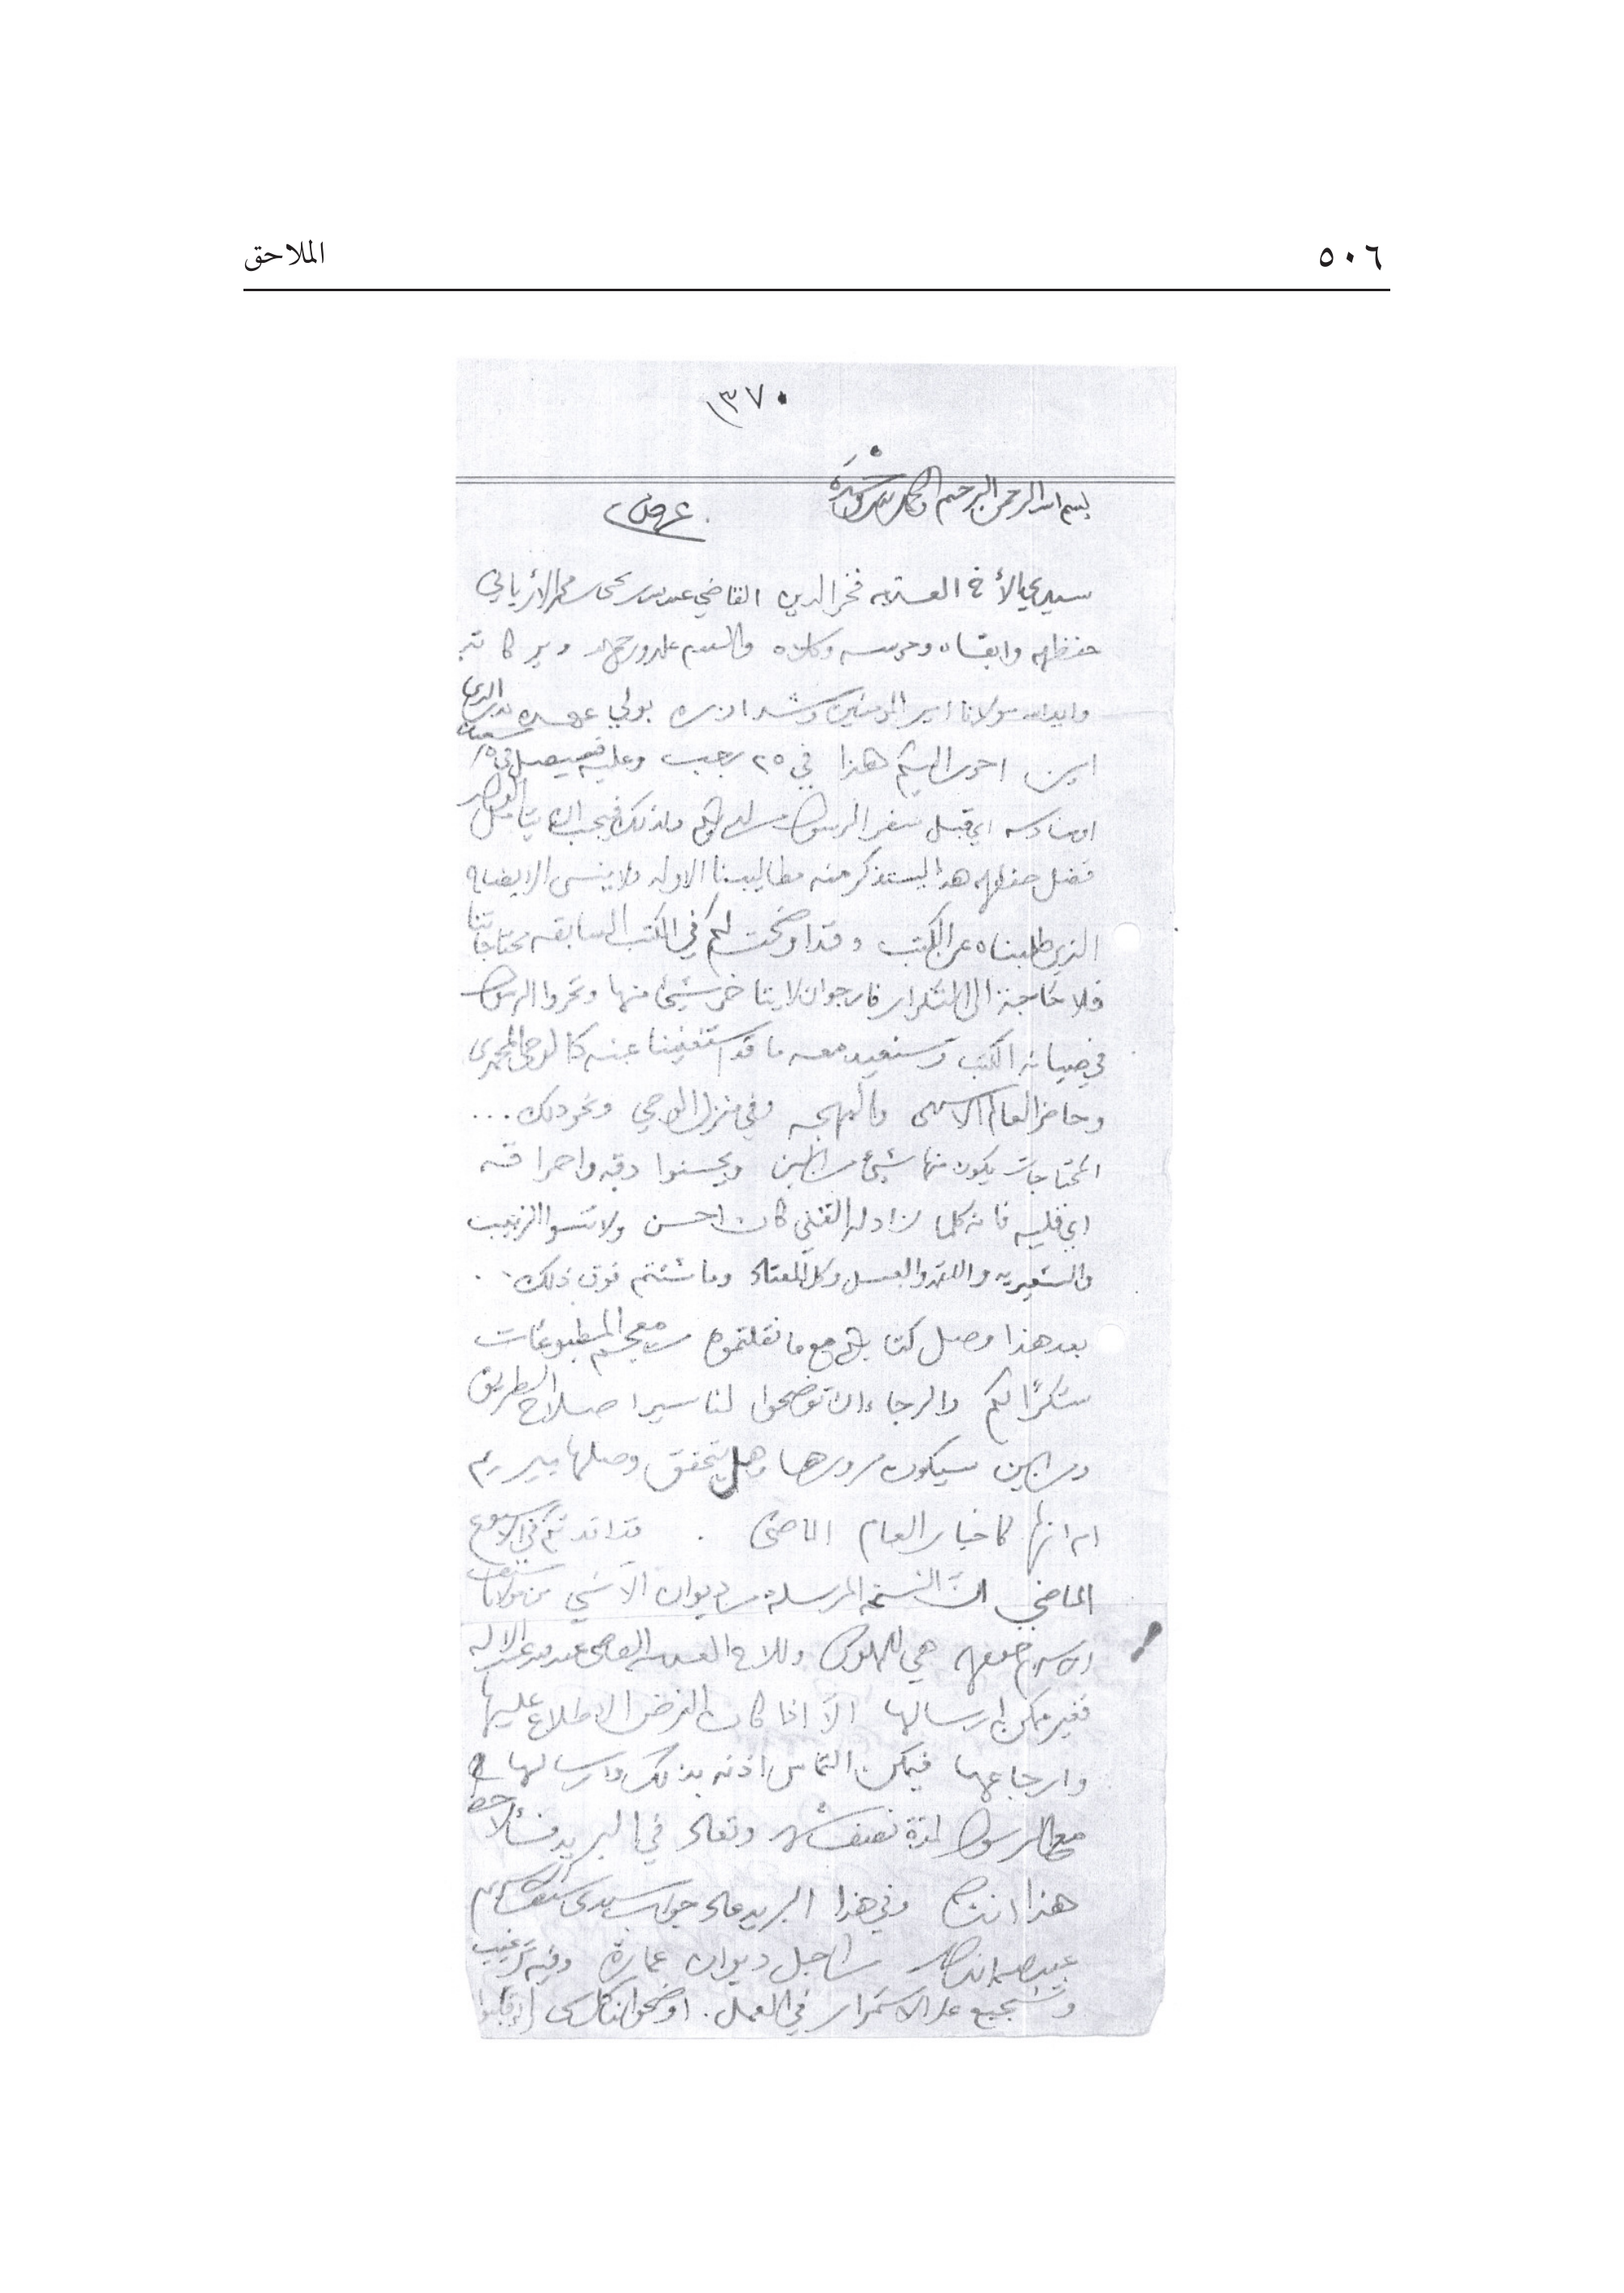 ٥٠٦
الملاحق
١٣٧٠
بسم الله الرحمن الرحيم
سيدي الأخ العلامه فخر الدين القاضي عبد الله بن يحيى بن محمد الأرياني
حفظه الله وابقاه وحرسه وكلاه والسلام عليه ورحمة الله وبركاته
وايد الله مولانا امير المؤمنين وشد ازره بولي عهده
احرر اليكم هذا في ٢٥ رجب وعليه فيصل في
اي قبل سفر الرسول من لديكم ولذلك فيجب ان يتأمل
فضل حفظه الله هذا ليستذكر منه مطاليبنا الاوله ولا ينسى الايضاح
الذي طلبناه عن الكتب وقد اوضحت لكم في الكتب السابقه محتاجاتنا
فلا حاجة الى التكرار فارجو ان لا يتأخر شيئ منها وتحروا الرسول
في صيانة الكتب وسنعيد معه ما قد استغنينا عنه كالوحي المحمدي
وحاضر العالم الاسلامي والبهجه وفي منزل الوحي ونحو ذلك ...
المحتاجات يكون منها شيئ من البن ويحسنوا دقه واحراقه
اي قليه فانه كلما زاد له القلي كان احسن ولا تنسوا الزبيب
والشعيريه والعسل وكل المعتاد وما شئتم فوق ذلك .
بعد هذا وصل كتابكم مع ما نقلتموه من معجم المطبوعات
شكرًا لكم والرجاء ان توضحوا لنا سير اصلاح الطريق
ومن اين سيكون مرورها وهل يتحقق وصلها بيريم
ام انها كاخبار العام الماضي . قد افدتكم في الاسبوع
الماضي انّ النسخة المرسلة من ديوان الآنسي من مولانا سيف
الاسلام حفظه الله هي للمملوك وللاخ العلامه القاضي
فغير ممكن ارسالها الّا اذا كان الغرض الاطلاع عليها
وارجاعها فيمكن التماس اذنه بذلك وارسالها
مع الرسول لمدة نصف شهر وتعاد في البريد
هذا انتم وفي هذا البريد عاد جواب سيدي سيف الاسلام
من اجل ديوان عمارة وفيه ترغيب
وتشجيع على الاستمرار في العمل . اوضحوا لنا